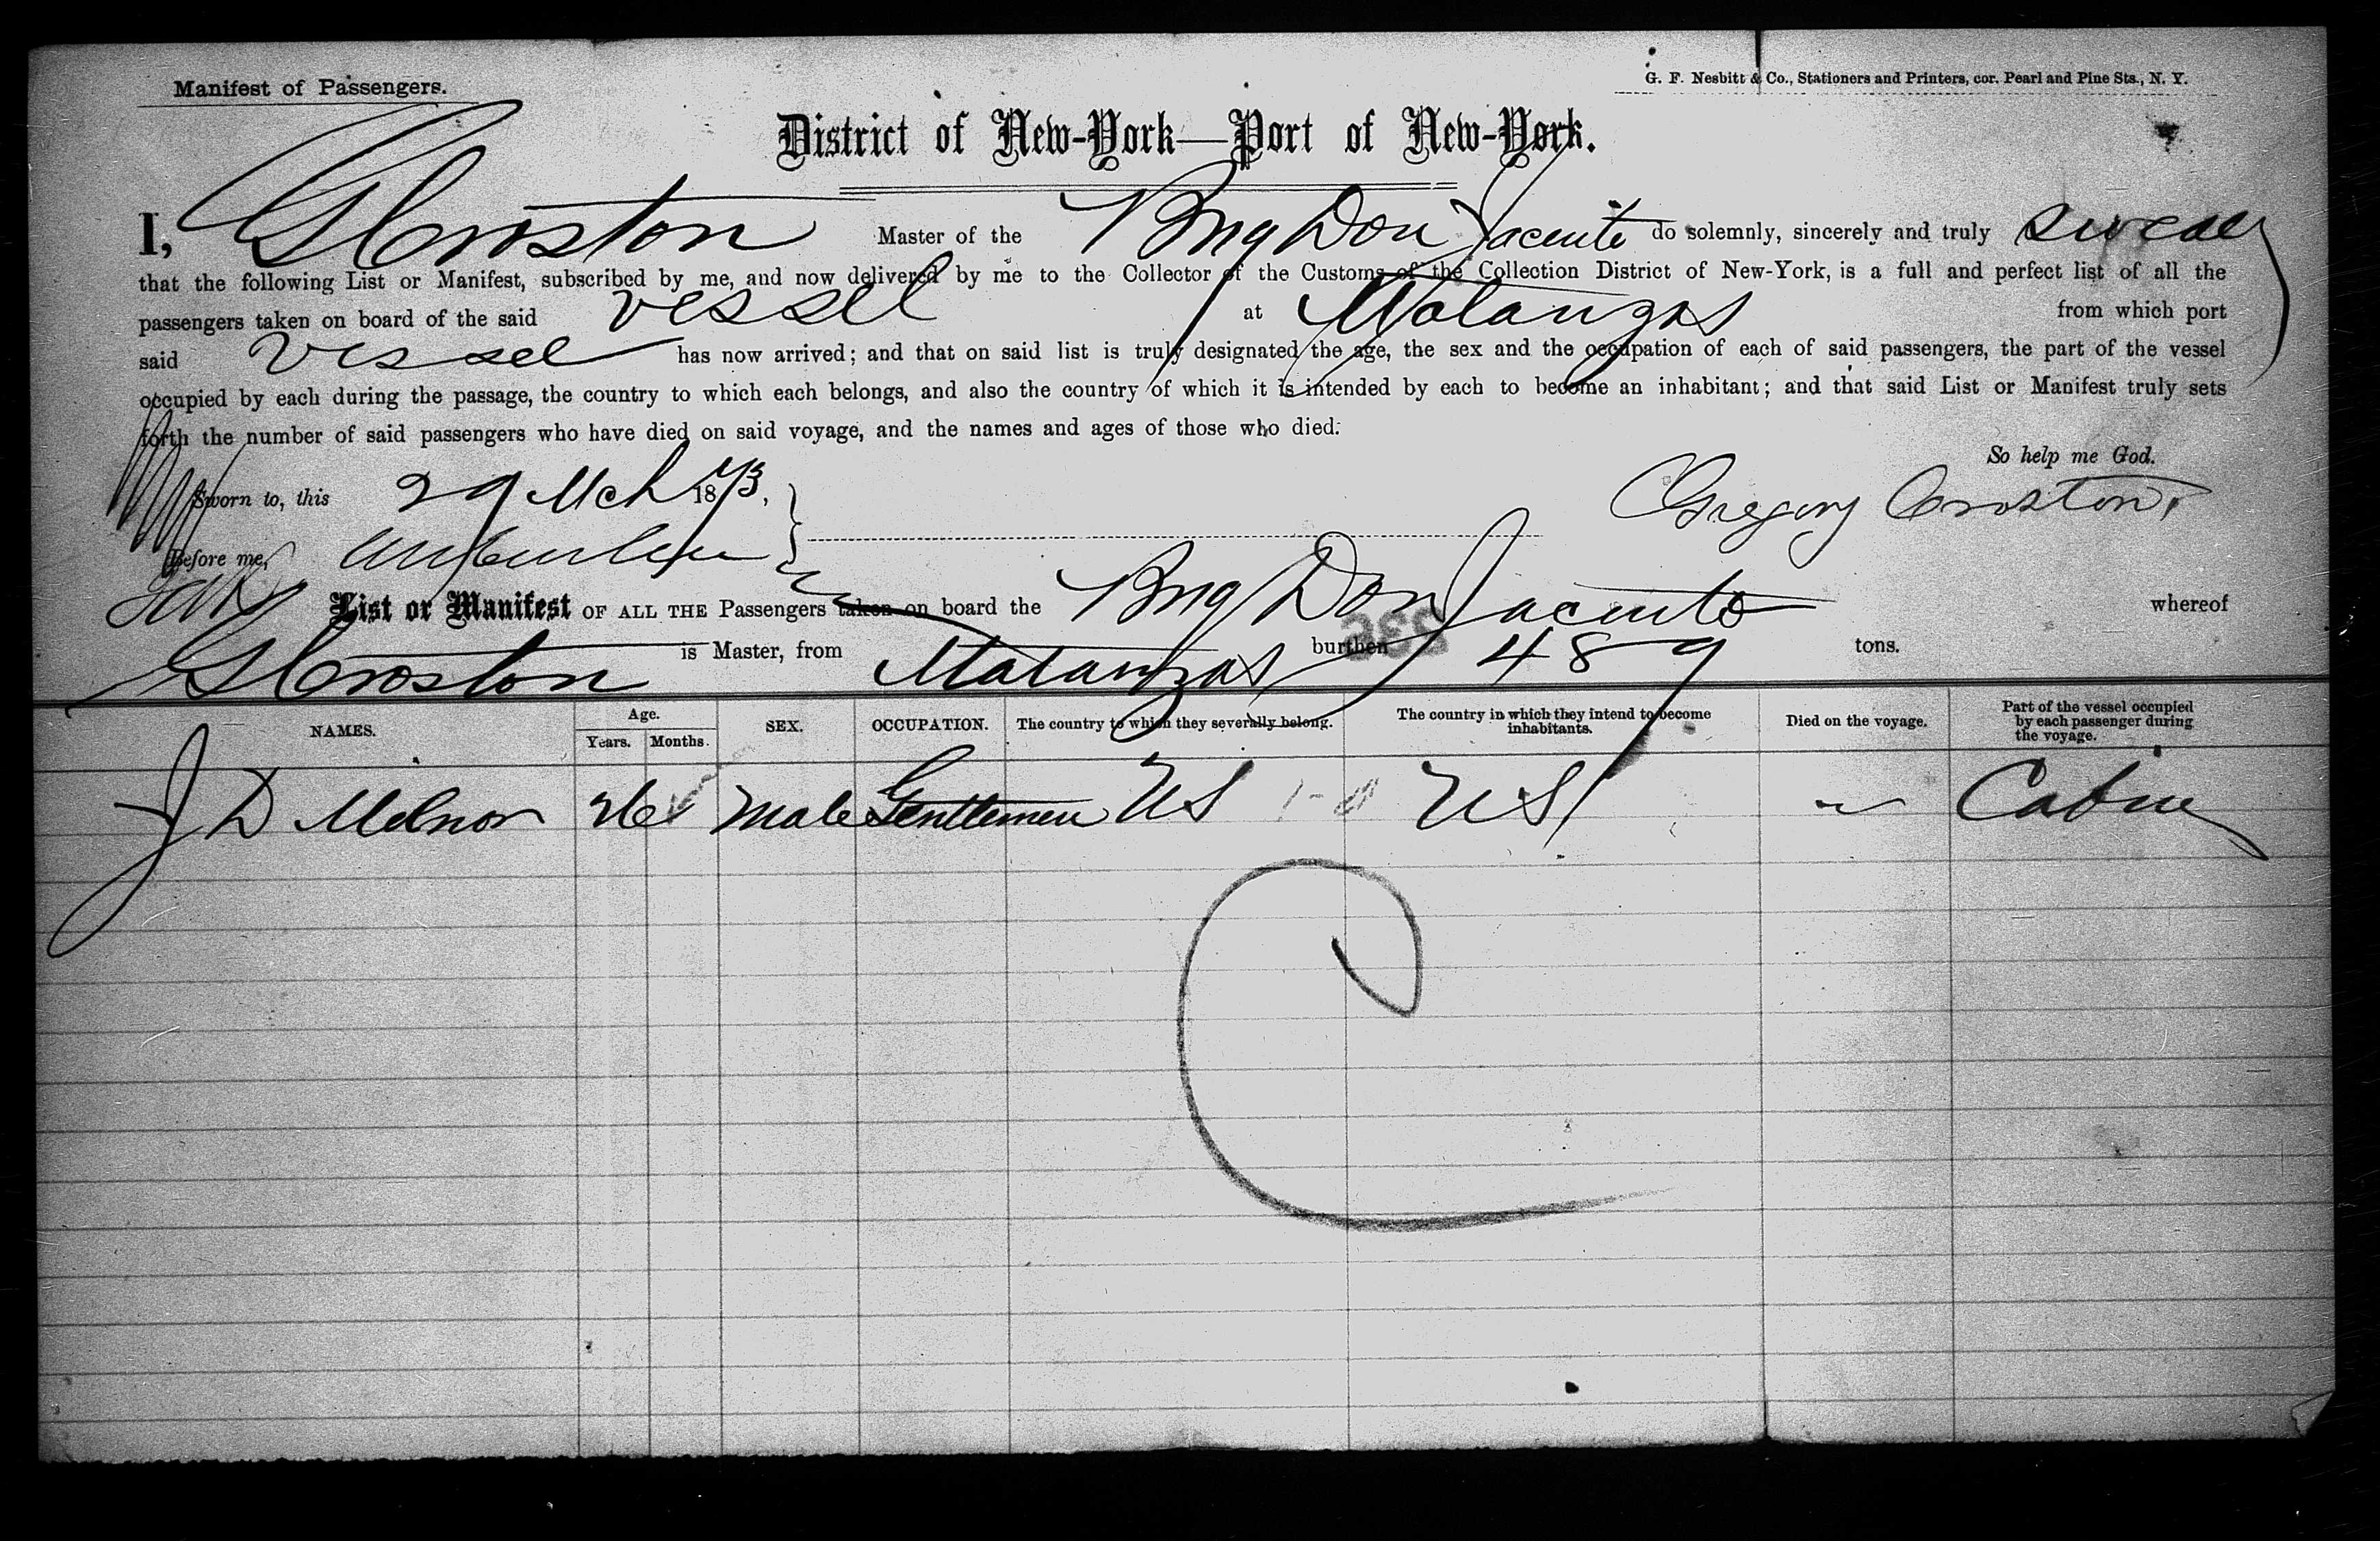 Manifest of Passengers.
G. F. Nesbitt & Co., Stationers and Printers, cor. Pearl and Pine Sts., N. Y.
District of New-York—Port of New-York.
I, G Croston Master of the Brig Don Jacinto do solemnly, sincerely and truly swear
that the following List or Manifest, subscribed by me, and now delivered by me to the Collector of the Customs of the Collection District of New-York, is a full and perfect list of all the
passengers taken on board of the said vessel at Matanzas from which port
said vessel has now arrived; and that on said list is truly designated the age, the sex and the occupation of each of said passengers, the part of the vessel
occupied by each during the passage, the country to which each belongs, and also the country of which it is intended by each to become an inhabitant; and that said List or Manifest truly sets
forth the number of said passengers who have died on said voyage, and the names and ages of those who died.
So help me God.
Sworn to, this 29 Mch 1873,
Gregory Croston
Before me,
List or Manifest OF ALL THE Passengers taken on board the Brig Don Jacinto whereof
G Croston is Master, from Matanzas burthen 489 tons.
NAMES. Age. Years. Months. SEX. OCCUPATION. The country to which they severally belong. The country in which they intend to become inhabitants. Died on the voyage. Part of the vessel occupied by each passenger during the voyage.
J D Milnor 26 Male Gentlemen US US Cabin